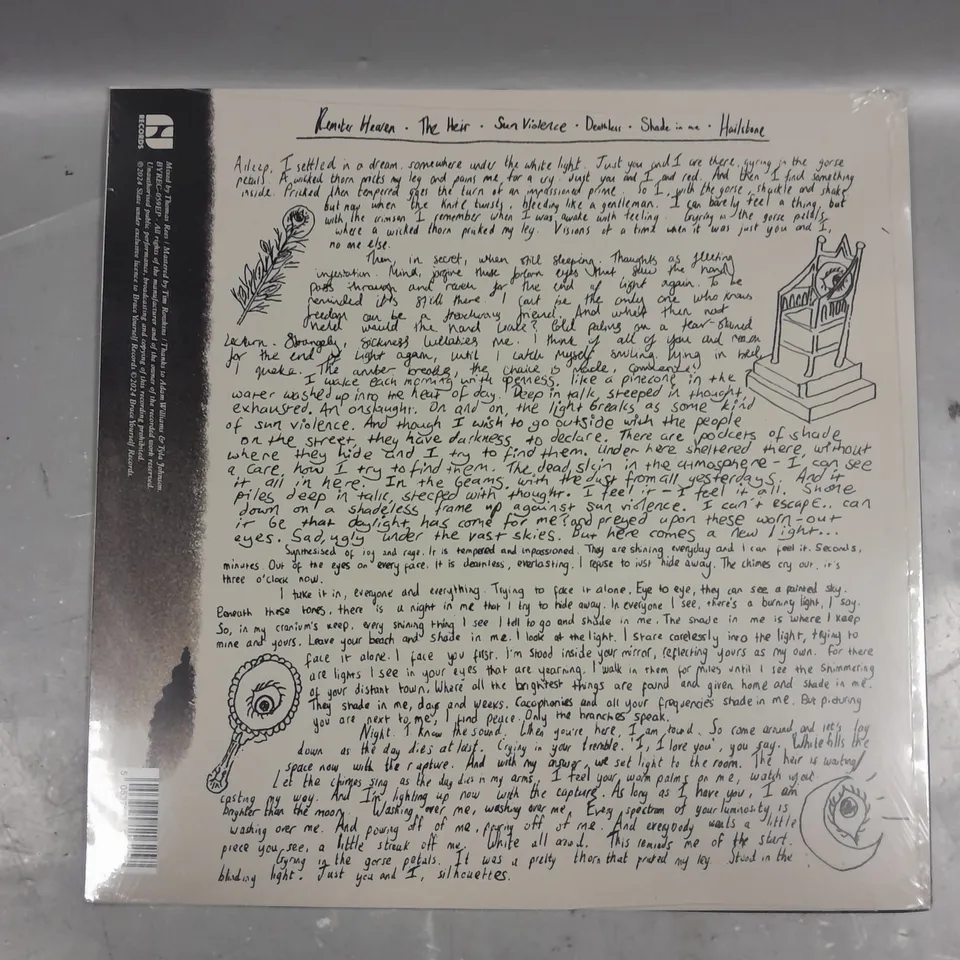 Remoter Heaven · The Heir · Sun Violence · Deathless · Shade in me · Hailstone
Asleep, I settled in a dream. somewhere under the white light. Just you and I are there, gyring in the gorse
petals. A wicked thorn pricks my leg and pains me, for a cry. Just you and I and red. And then I find something
inside. Pricked then tempered goes the turn of an impassioned prime. So I, with the gorse, shackle and shake
but now when the knife twists, bleeding like a gentleman. I can barely feel a thing, but
with the crimson I remember when I was awake with feeling. Gyring in the gorse petals,
where a wicked thorn pricked my leg. Visions of a time when it was just you and I,
no one else.
Then, in secret, when still sleeping. Thoughts as fleeting
infestation. Mind, forgive these forlorn eyes that saw the hand
pass through and raven for the end of light again. To be
reminded it's still there. I can't be the only one who knows
freedom can be a treacherous friend. And what then not
held would the hand leave? Cold palms on a tear-stained
lectern. Strangely, sickness lullabies me. I think of all of you and
for the end of light again, until I catch myself smiling. Lying in bed,
I quake. The amber breaks, the choice is made, commence!
I wake each morning with openness. like a pinecone in the
water washed up into the heat of day. Deep in talk, steeped in thought,
exhausted. An onslaught. On and on, the light breaks as some kind
of sun violence. And though I wish to go outside with the people
on the street, they have darkness to declare. There are pockets of shade
where they hide and I try to find them. Under here sheltered there, without
a care, how I try to find them. The dead skin in the atmosphere - I can see
it all in here. In the beams. with the dust from all yesterdays. And it
piles deep in talk, steeped with thought. I feel it - I feel it all. Shone
down on a shadeless frame up against sun violence. I can't escape.. can
it be that daylight has come for me? and preyed upon these worn-out
eyes. Sad, ugly under the vast skies. But here comes a new light...
Synthesised of joy and rage. It is tempered and impassioned. They are shining everyday and I can feel it. Seconds,
minutes. Out of the eyes on every face. It is deathless, everlasting. I refuse to just hide away. The chimes cry out, it's
three o'clock now.
I take it in, everyone and everything. Trying to face it alone. Eye to eye, they can see a painted sky.
Beneath these tones, there is a night in me that I try to hide away. In everyone I see, there's a burning light, I say.
So, in my cranium's keep. every shining thing I see I tell to go and shade in me. The shade in me is where I keep
mine and yours. Leave your beach and shade in me. I look at the light. I stare carelessly into the light, trying to
face it alone. I face you first. I'm stood inside your mirror, reflecting yours as my own. For there
are lights I see in your eyes that are yearning. I walk in them for miles until I see the shimmering
of your distant town. Where all the brightest things are found and given home and shade in me.
They shade in me, days and weeks. Cacophonies and all your frequencies shade in me. But picturing
you are next to me, I find peace. Only the branches speak.
Night. I know the sound. When you're, here, I am found. So come around and let's lay
down as the day dies at last. Crying in your tremble. 'I, I love you', you say. White fills the
space now with the rapture. And with my answer, we set light to the room. The heir is waiting
Let the chimes sing as the day dies in my arms, I feel your worn palms on me, watch your
casting my way. And I'm lighting up now with the capture. As long as I have you, I am
brighter than the moon. Washing over me, washing over me, Every spectrum of your luminosity is
washing over me. And pouring off of me, pouring off of me. And everybody wants a little
piece you see, a little streak off me. White all around. This reminds me of the start.
Gyring in the gorse petals. It was a pretty thorn that pricked my leg. Stood in the
blinding light. Just you and I, silhouettes.
RECORDS
Mixed by Thomas Rees / Mastered by Tim Rowkins / Thanks to Adam Williams & Tyla Johnson
BYREC-059EP · All rights of the manufacturer and of the owner of the recorded work reserved.
Unauthorised public performance, broadcasting and copying of this recording prohibited.
under exclusive licence to Brace Yourself Records ©2024 Brace Yourself Records.